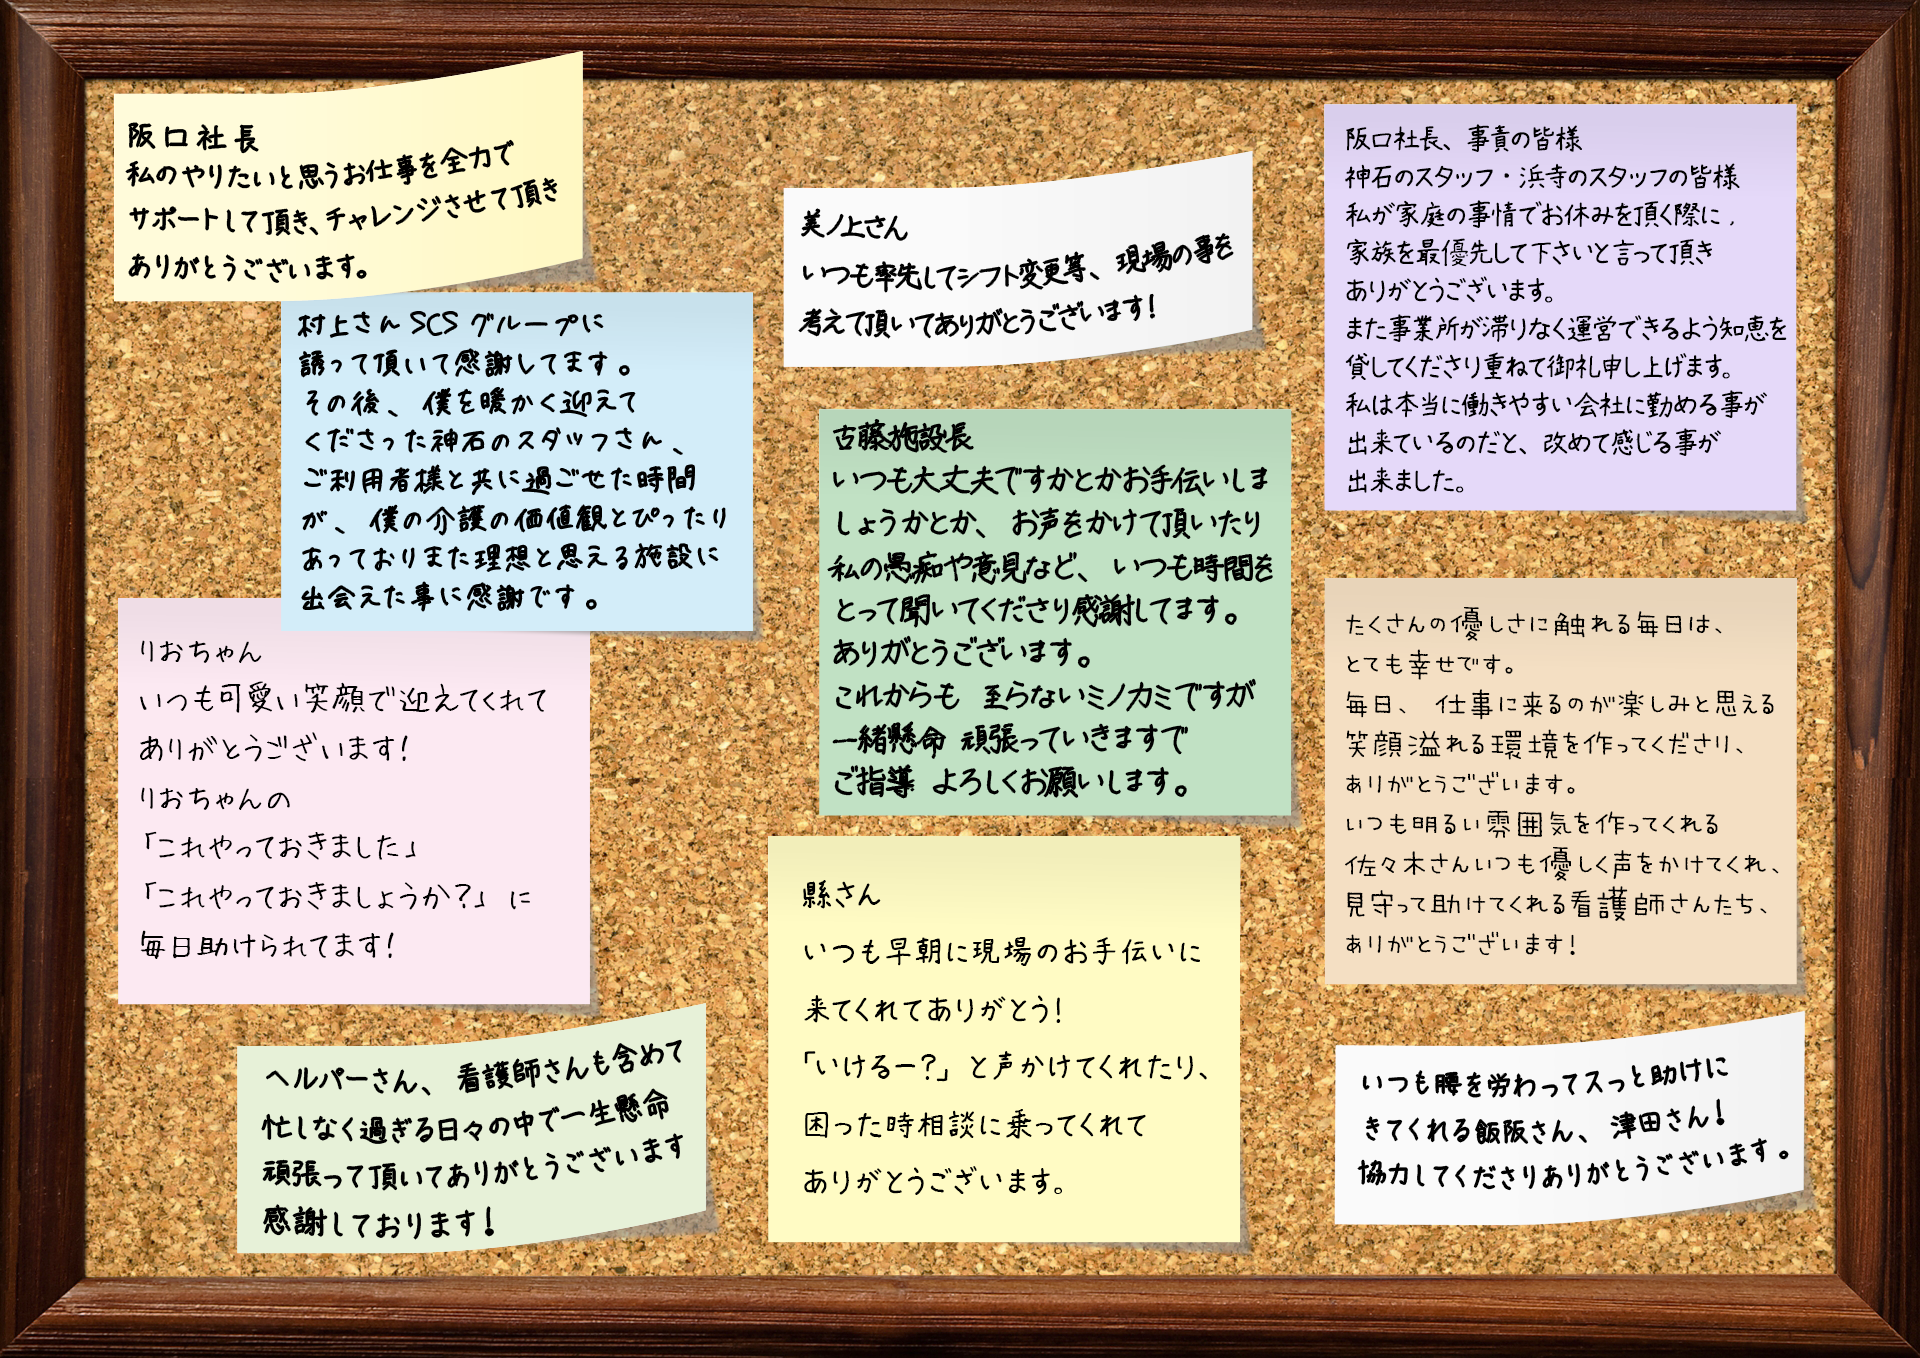 阪口社長
私のやりたいと思うお仕事を全力で
サポートして頂き、チャレンジさせて頂き
ありがとうございます。
村上さんSCSグループに
誘って頂いて感謝してます。
その後、僕を暖かく迎えて
くださった神石のスダッフさん、
ご利用者様と共に過ごせた時間
が、僕の介護の価値観とぴったり
あっておりまた理想と思える施設に
出会えた事に感謝です。
りおちゃん
いつも可愛い笑顔で迎えてくれて
ありがとうございます!
りおちゃんの
「これやっておきました」
「これやっておきましょうか?」に
毎日助けられてます!
ヘルパーさん、看護師さんも含めて
忙しなく過ぎる日々の中で一生懸命
頑張って頂いてありがとうございます
感謝しております!
美ノ上さん
いつも率先してシフト変更等、現場の事を
考えて頂いてありがとうございます!
古藤施設長
いつも大丈夫ですかとかお手伝いしま
しょうかとか、お声をかけて頂いたり
私の愚痴や意見など、いつも時間を
とって聞いてくださり感謝してます。
ありがとうございます。
これからも 至らないミノカミですが
一緒懸命 頑張っていきますで
ご指導 よろしくお願いします。
縣さん
いつも早朝に現場のお手伝いに
来てくれてありがとう!
「いけるー?」と声かけてくれたり、
困った時相談に乗ってくれて
ありがとうございます。
阪口社長、事責の皆様
神石のスタッフ・浜寺のスタッフの皆様
私が家庭の事情でお休みを頂く際に,
家族を最優先して下さいと言って頂き
ありがとうございます。
また事業所が滞りなく運営できるよう知恵を
貸してくださり重ねて御礼申し上げます。
私は本当に働きやすい会社に勤める事が
出来ているのだと、改めて感じる事が
出来ました。
たくさんの優しさに触れる毎日は、
とても幸せです。
毎日、仕事に来るのが楽しみと思える
笑顔溢れる環境を作ってくださり、
ありがとうございます。
いつも明るい雰囲気を作ってくれる
佐々木さんいつも優しく声をかけてくれ、
見守って助けてくれる看護師さんたち、
ありがとうございます!
いつも腰を労わってスっと助けに
きてくれる飯阪さん、津田さん!
協力してくださりありがとうございます。